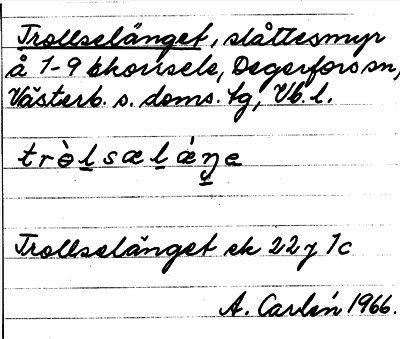 Trollselänget, slåttesmyr
å 1-9 Ekorrsele, Degerfors sn,
Västerb. s. doms. tg, Vb. l.
tròl̲sæl̲ǽŋe
Trollselänget ek 22 7 1c
A. Carlén 1966.